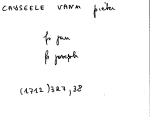 CAUSEELE VANM pieter
fs jan
fs joseph
(1712) 327, 38